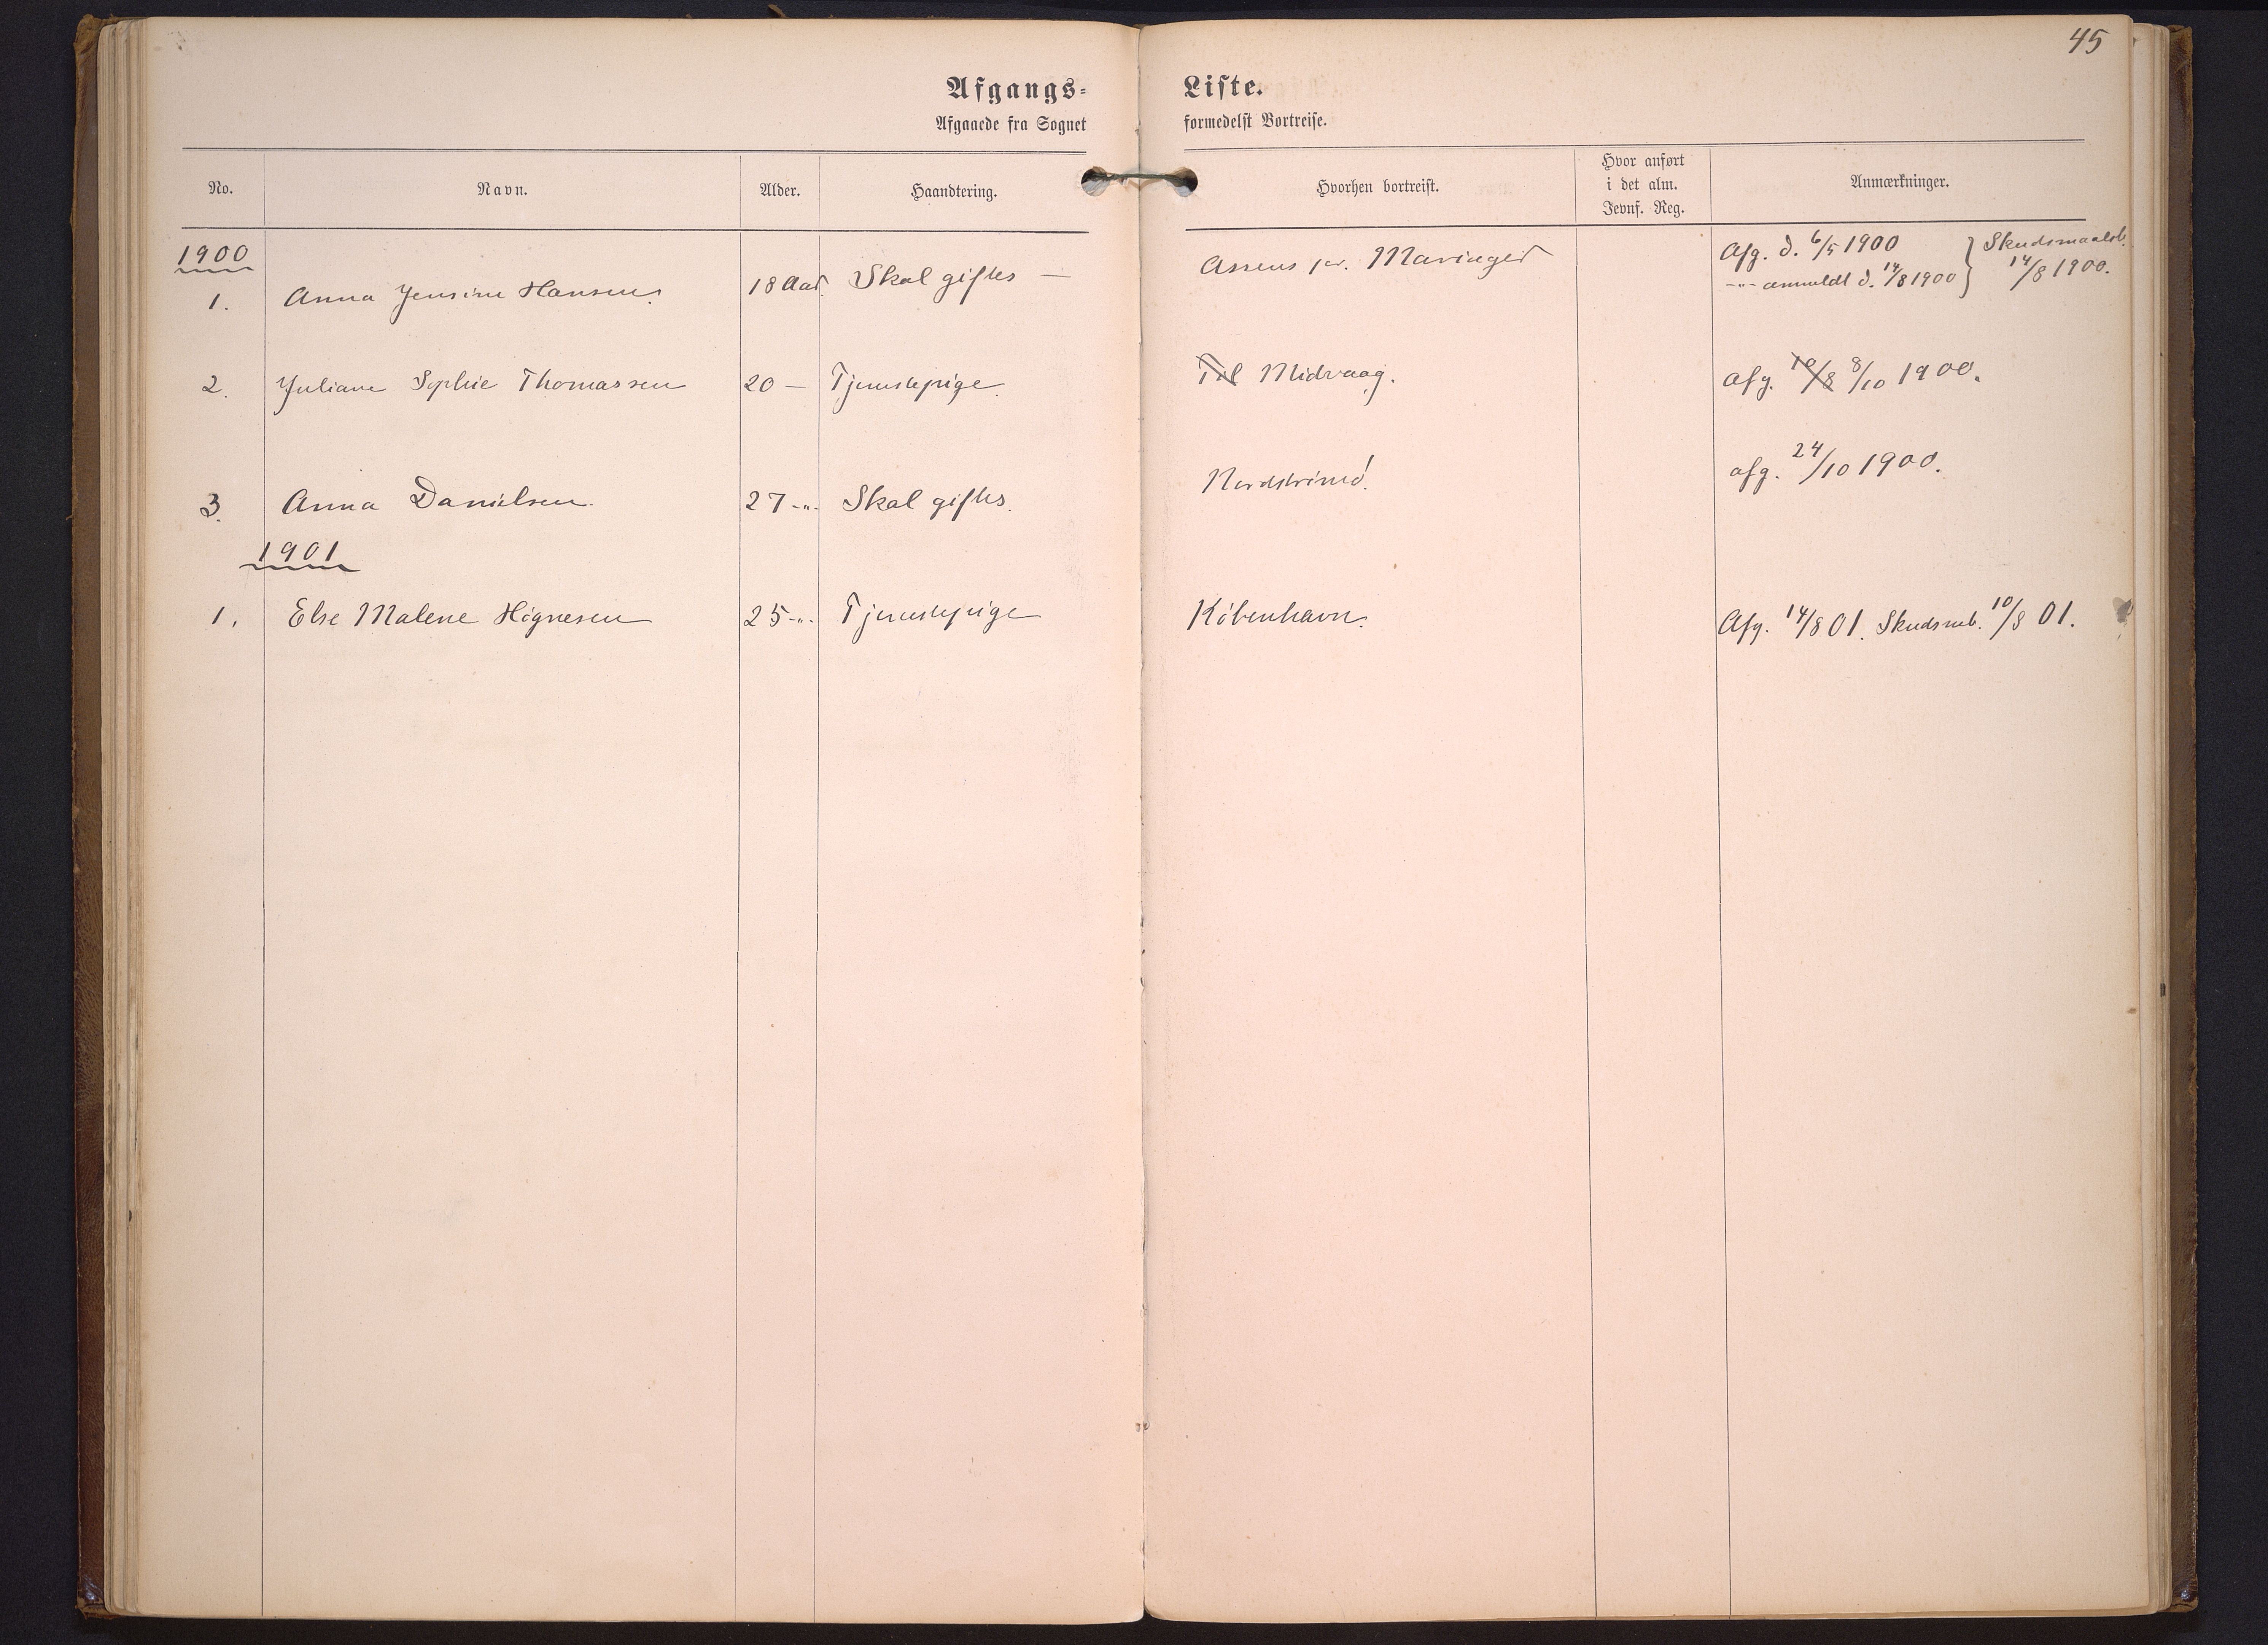 45
Afgangs-Liste.
Afgaaede fra Sognet formedelst Bortreise.
No. Navn. Alder. Haandtering. Hvorhen bortreist. Hvor anført i det alm. Jevnf. Reg. Anmærkninger.
1900
1. Anna Jensine Hansen. 18 Aar. Skal giftes — Assens pr. Mariager Afg. d. 6/5 1900 } Skudsmaalsb.
-"- anmeldt d. 14/8 1900 } 14/8 1900.
2. Juliane Sophie Thomassen 20 — Tjenestepige. Til Midvaag. Afg. 10/8 8/10 1900.
3. Anna Danielsen. 27 -"- Skal giftes. Nordstrømø. afg. 24/10 1900.
1901
1. Else Malene Høgnesen 25 -"- Tjenestepige København. Afg. 14/8 01. Skudsmb. 10/8 01.